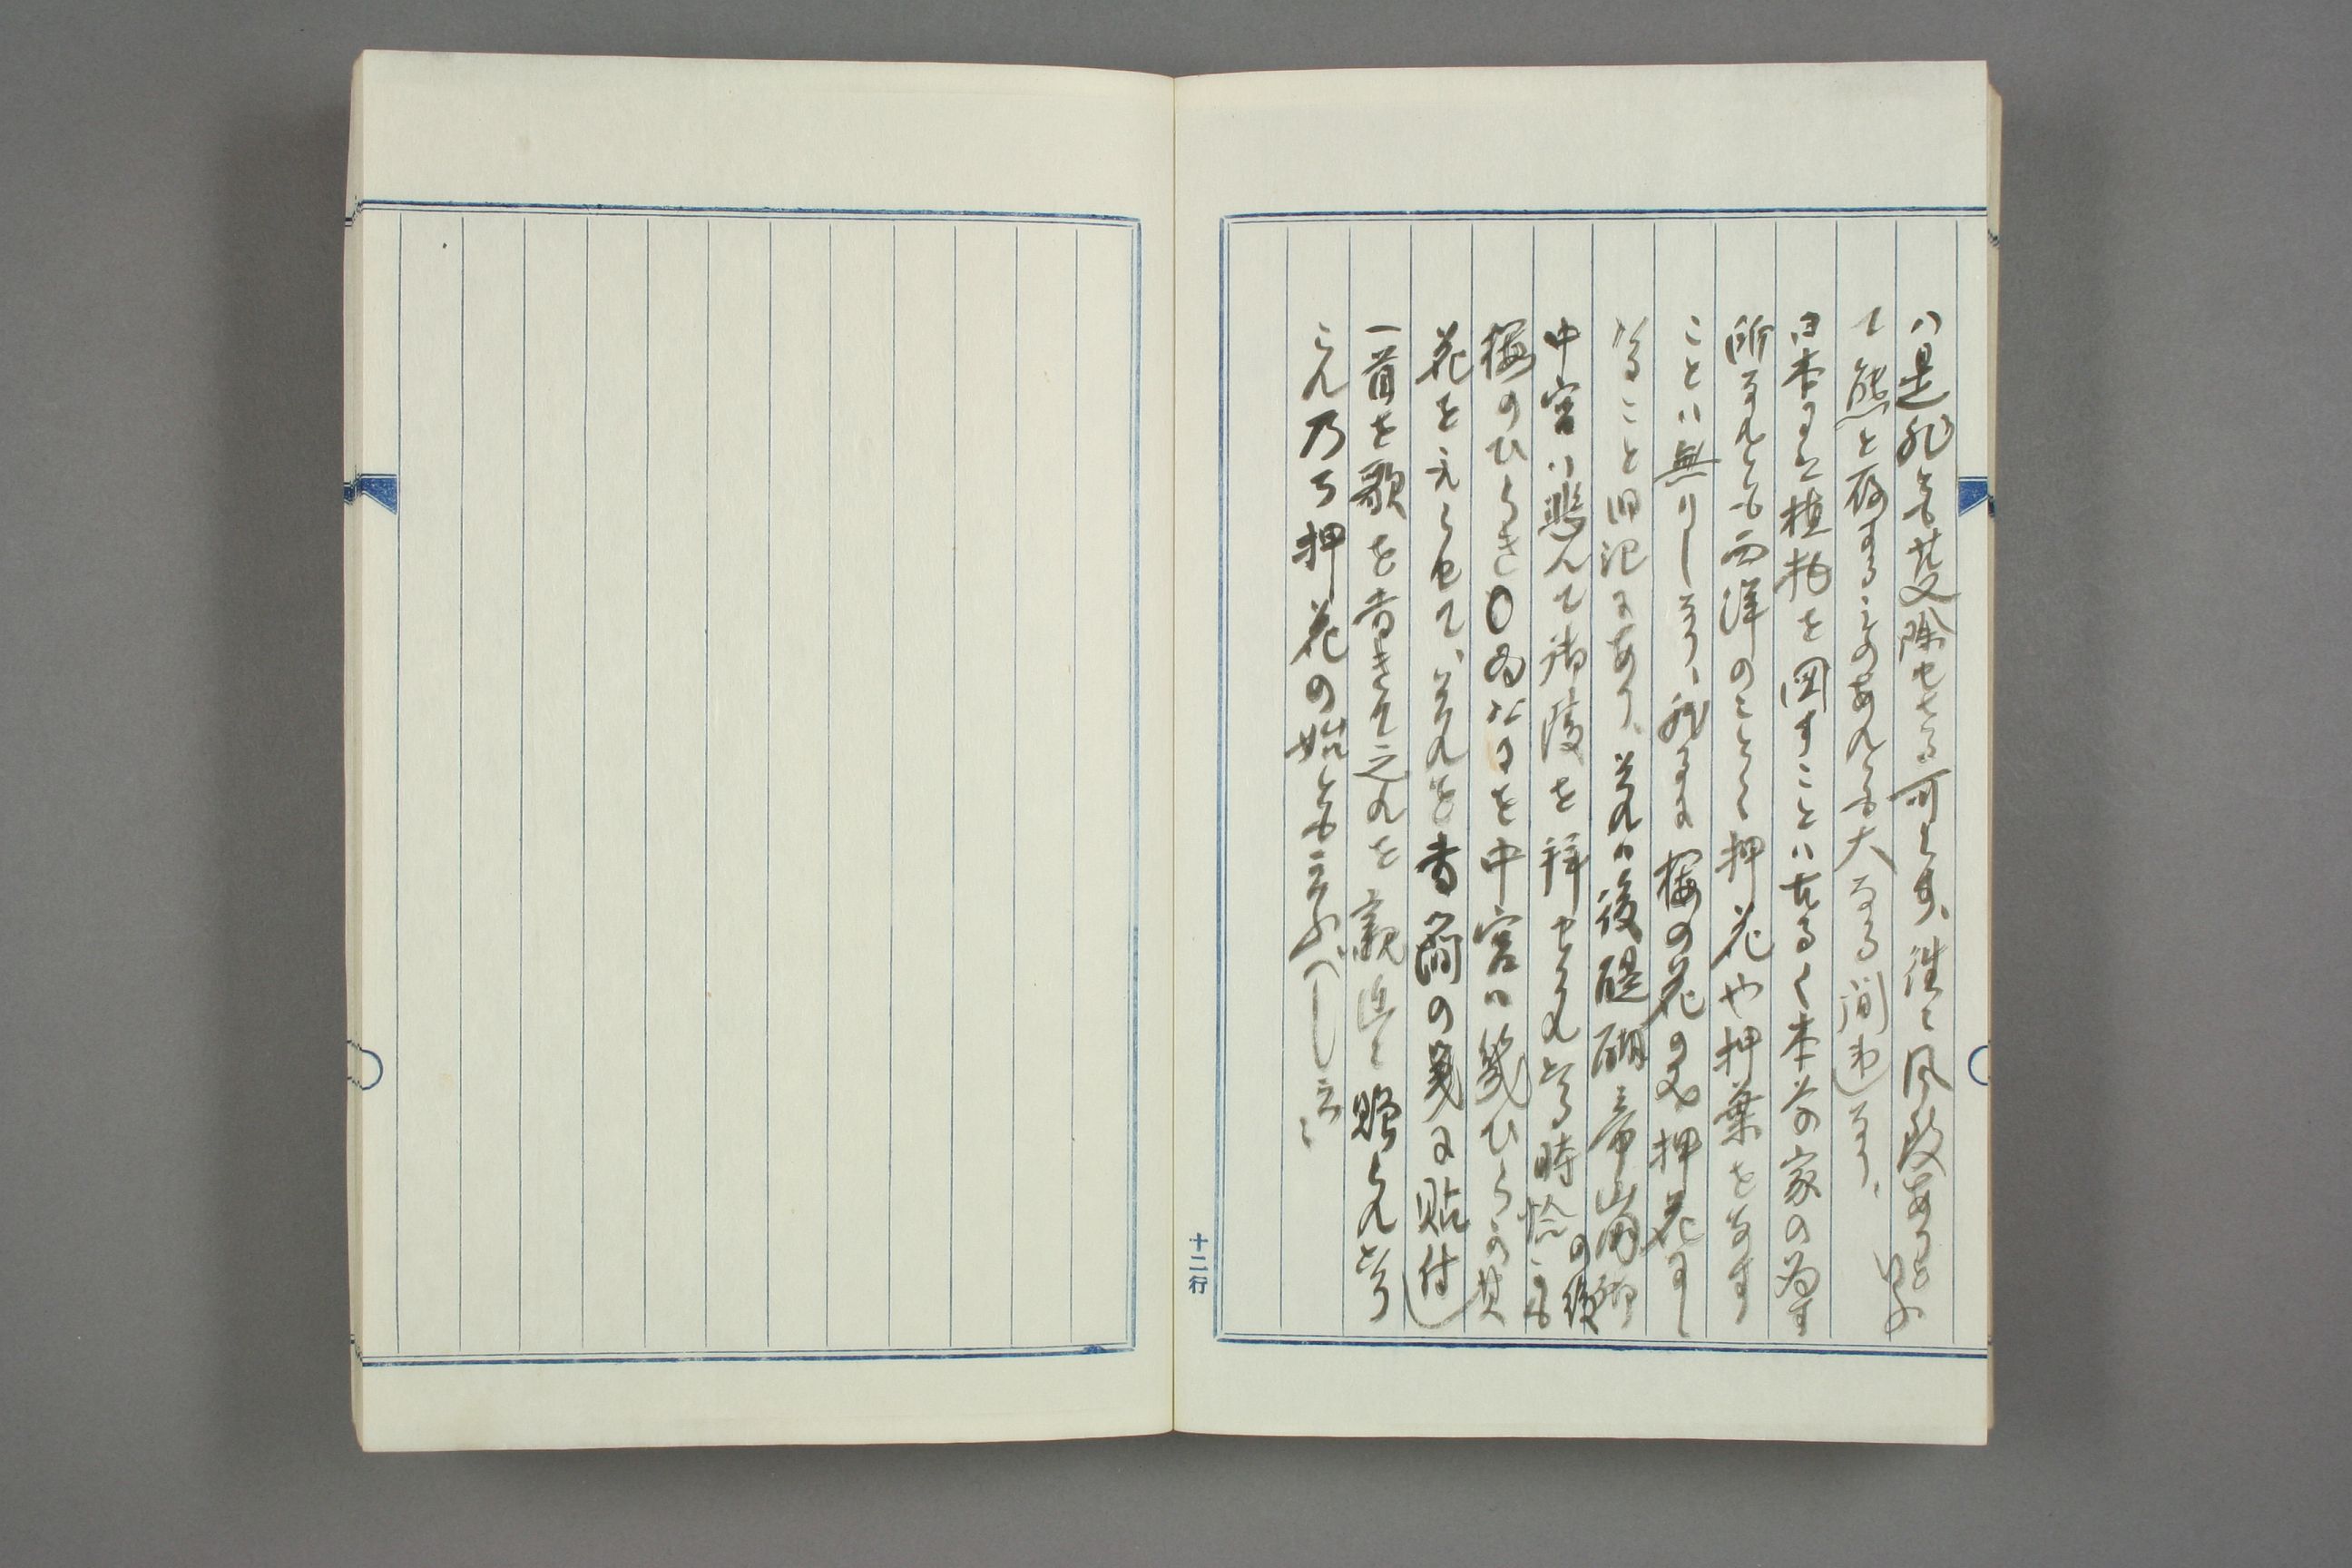 ハ是非とも芟除せさる可らす、往々風致ありと
いふ
て態と存するものあれとも大なる間違なり、
日本にて植物を図すことハ古るく本草家の為す
所なれとも西洋のことく押花や押葉をなす
ことハ無りしなり、然るに梅の花の之押花にし
ること旧記にあり、そハ後醍醐帝崩御
の後
中宮ハ悲んて御陵を拝せられたる時恰かも
梅のひらき中宮ハ幾ひらか其
花をえらせて、それを書簡の箋に貼付し
一首を歌を書きて之れを親近に贈られたり
これ乃ち押花の始とも言ふべし云々
十二行